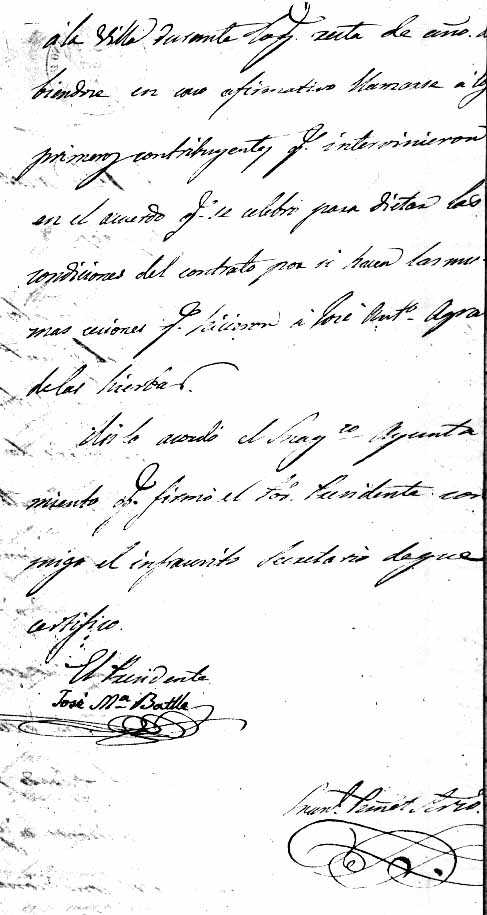 á la Villa durante lo q.e resta de año. de
biendose en caso afirmativo llamarse á los
primeros contribuyentes q.e intervinieron
en el acuerdo q.e se celebró para dictar las
condiciones del contrato por si hacen las mis
mas cesiones q.e hicieron á José Ant.o Agra
de las hierbas.
Así lo acordó el Ayunta
miento q.e firmó el Sor. Presidente con
migo el infraescrito Secretario de que
certifico.
El Presidente
José M.a Batlle
Srio.